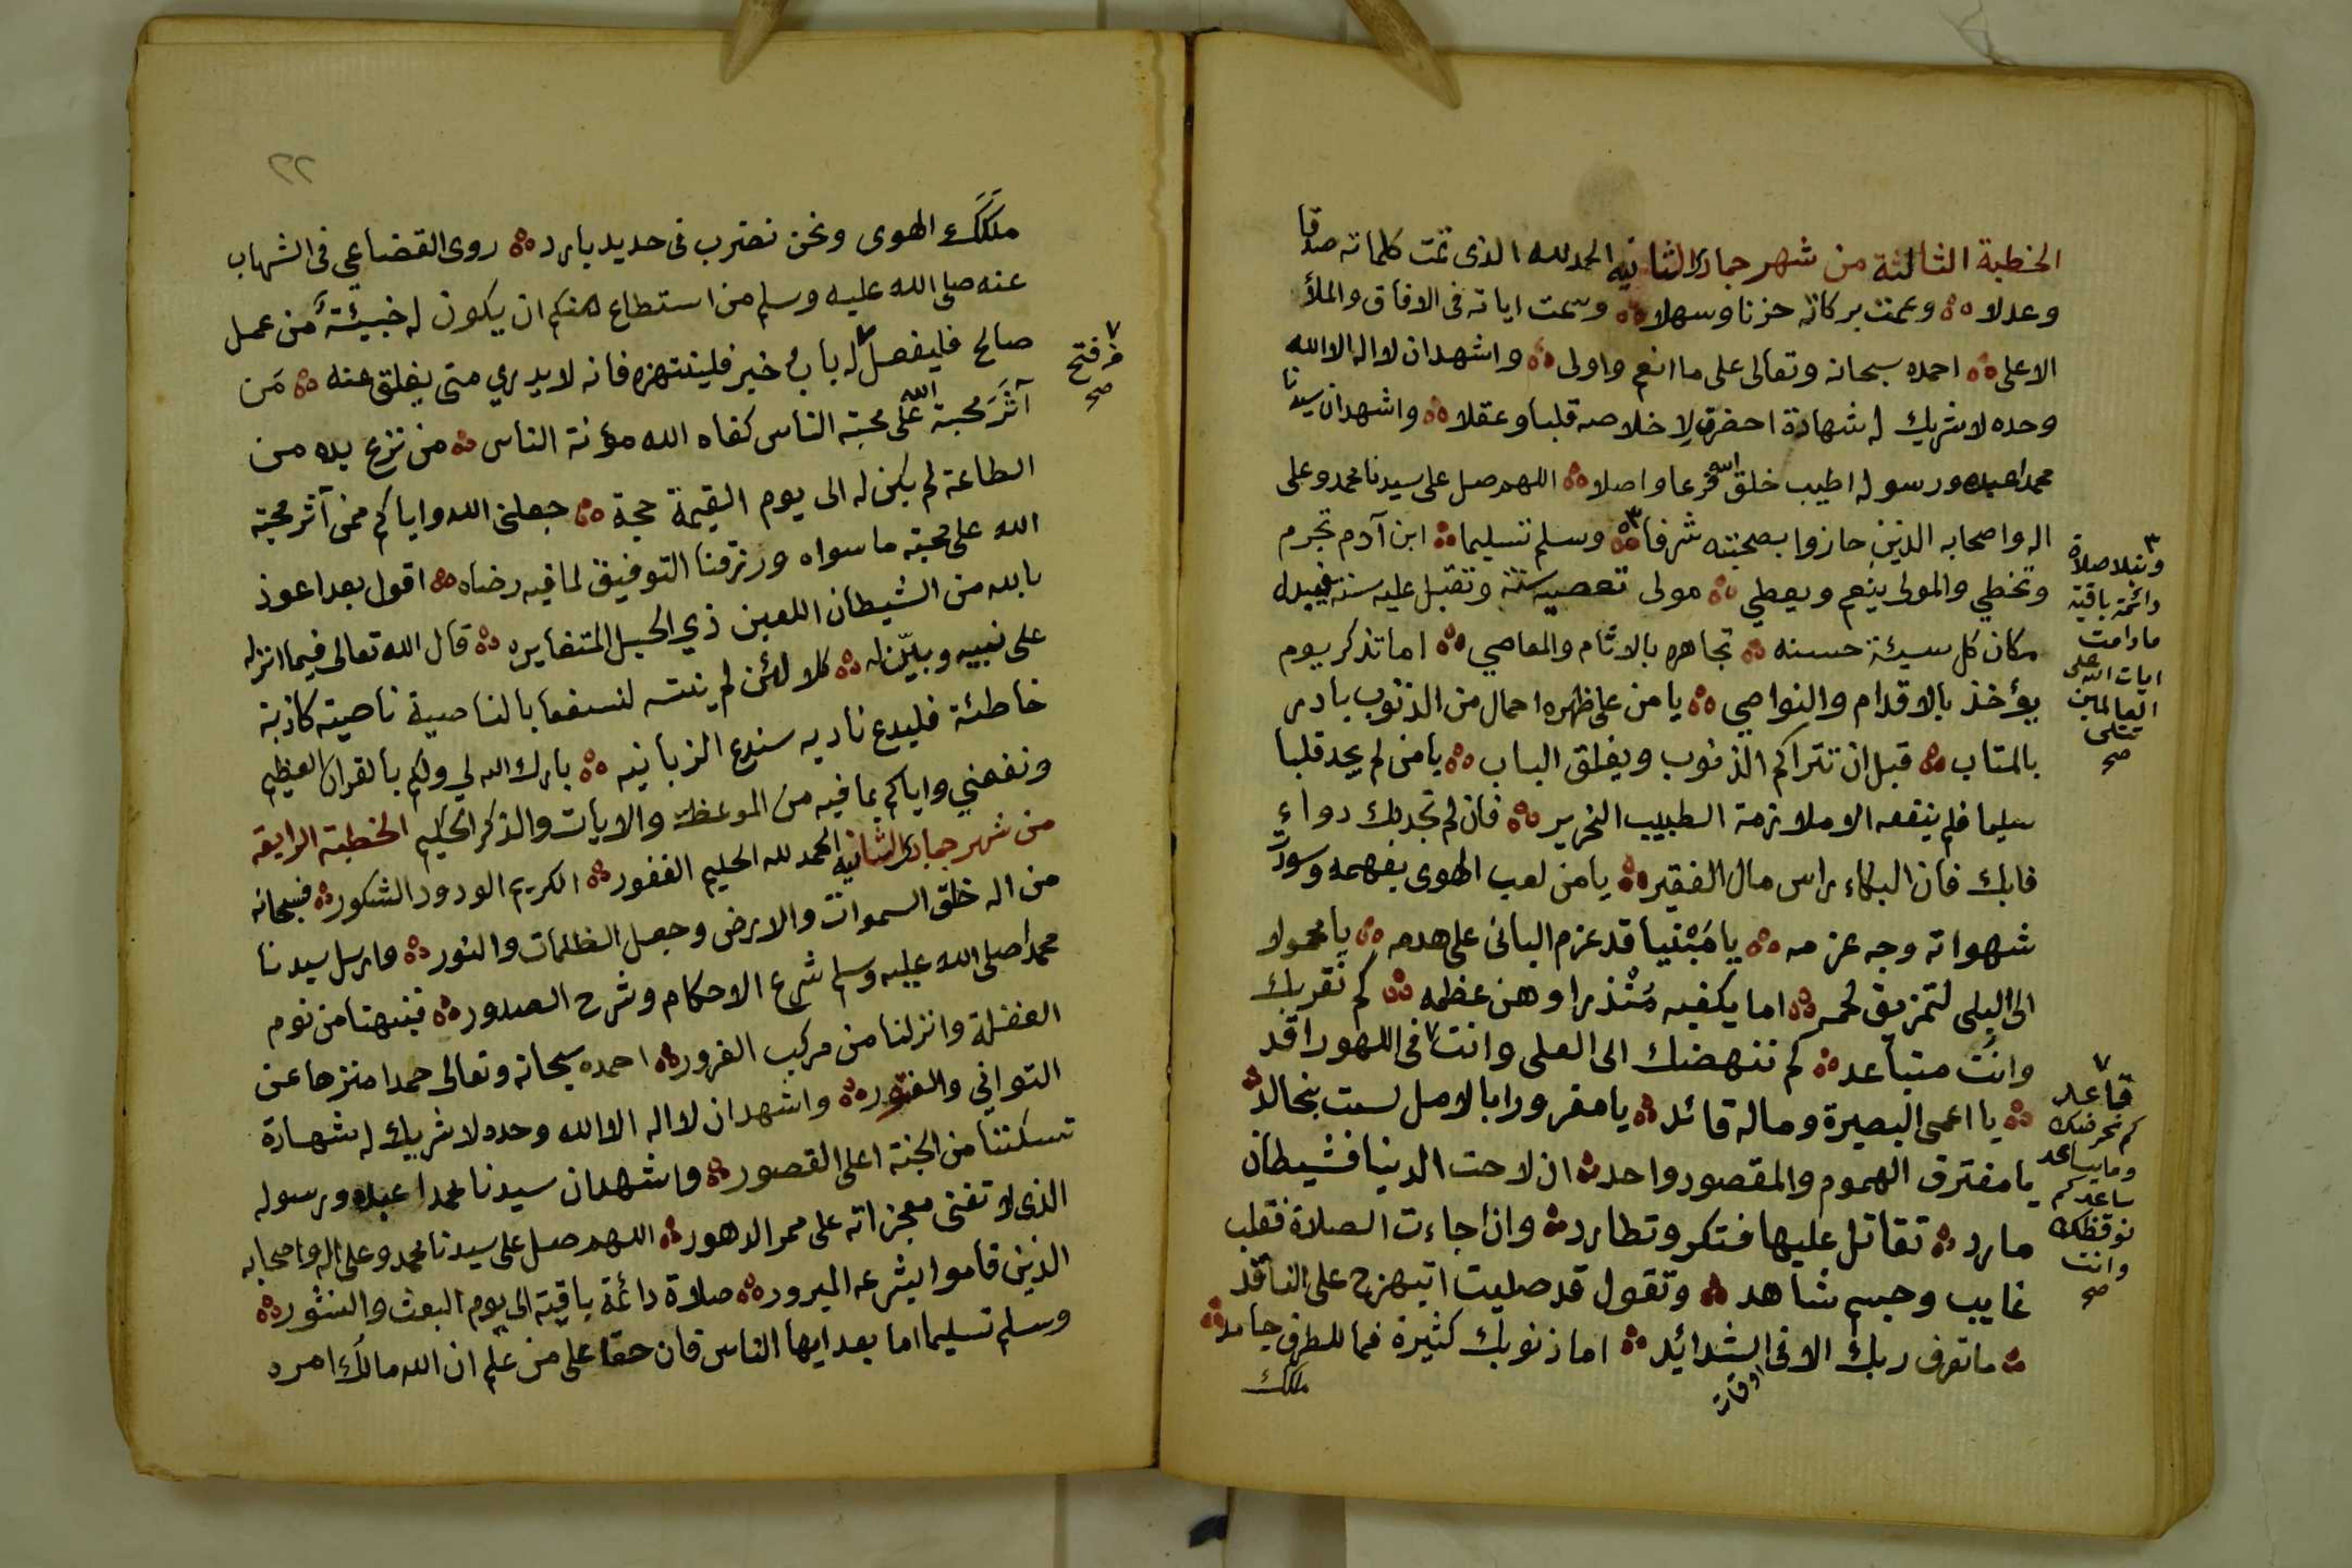 الخطبة الثالثة من شهر جمادى الثانيه الحمد لله الذى تمت كلماته صدقا
وعدلا وعمت بركاته حزنا وسهلا وسمت اياته فى الافاق والملأ
الاعلى احمده سبحانه وتعالى على ما انعم واولى واشهد ان لا اله الا الله
وحده لا شريك له شهادة احضرق لاخلاصه قلبا وعقلا واشهد ان سيدنا
محمدا عبده ورسوله اطيب خلق الله فرعا واصلا اللهم صل على سيدنا محمد وعلى
اله واصحابه الذين حازوا بصحبته شرفا ٣ وسلم تسليما ابن آدم تجرم
وتخطي والمولى ينعم ويعطي مولى تعصيه سنة وتقبل عليه سنة فيبدله
مكان كل سيئة حسنه تجاهره بالاثام والمعاصي اما تذكر يوم
يؤخذ بالاقدام والنواصي يا من على ظهره احمال من الذنوب بادر
بالمتاب قبل ان تتراكم الذنوب ويغلق الباب يا من لم يجد قلبا
سليما فلم ينفعه الا ملازمة الطبيب النحرير فان لم تجد بك دواء
فابك فان البكاء راس مال الفقير يا من لعب الهوى بفهمه وسودت
شهواته وجه عزمه يا مَبْنيا قد عزم البانى على هدمه يا محمولا
الى البلى لتمزيق لحمه اما يكفيه مُنْذرا وهن عظمه كم نقربك
وانت متباعد كم ننهضك الى العلى وانت ٧ فى اللهو راقد
يا اعمى البصيرة وماله قائد يا مغرورا بالامل لست بخالد
يا مفترق الهموم والمقصود واحد ان لاحت الدنيا فشيطان
مارد تقاتل عليها فتكر وتطارد واذا جاءت الصلاة فقلب
غايب وجسم شاهد وتقول قد صليت اتبهرج على الناقد
ما تعرف ربك الا فى الشدائد اما ذنوبك كثيرة فما للطرف جامد
اوقات
ملكك
٣
ونفلا صلاة
دائمة باقية
ما دامت
ايات الله على
العالمين
تتلى
صح
٧
قاعد
كم نحرضك
وما يساعد
ساعد كم
نوقظك
وانت
صح
٢٢
ملكك الهوى ونحن نضرب فى حديد بارد روى القضاعي فى الشهاب
عنه صلى الله عليه وسلم من استطاع منكم ان يكون له خبيئة من عمل
صالح فليفعل ٧ له باب خير فلينتهزه فانه لا يدري متى يغلق عنه مَن
آثَرَ محبة الله على محبة الناس كفاه الله مؤنة الناس من نزع يده من
الطاعة لم يكن له الى يوم القيمة حجة جعلنى الله واياكم ممن آثر محبة
الله على محبة ما سواه ورزقنا التوفيق لما فيه رضاه اقول بعد اعوذ
بالله من الشيطان اللعين ذي الحيل المتغايره قال الله تعالى فيما انزله
على نبيه وبيّن له كلا لئن لم ينته لنسفعا بالناصية ناصية كاذبة
خاطئة فليدع ناديه سندع الزبانيه بارك الله لي ولكم بالقران العظيم
ونفعني واياكم بما فيه من الموعظة والايات والذكر الحكيم الخطبة الرابعة
من شهر جمادى الثانيه الحمد لله الحليم الغفور الكريم الودود الشكور فسبحانه
من اله خلق السموات والارض وجعل الظلمات والنور وارسل سيدنا
محمدا صلى الله عليه وسلم شرع الاحكام وشرح الصدور فنبهنا من نوم
الغفلة وانزلنا من مركب الغرور احمده سبحانه وتعالى حمدا منزها عن
التواني والفتور واشهد ان لا اله الا الله وحده لا شريك له شهادة
تسكننا من الجنة اعلى القصور واشهد ان سيدنا محمدا عبده ورسوله
الذى لا تفنى معجزاته على ممر الدهور اللهم صل على سيدنا محمد وعلى اله واصحابه
الذين قاموا بشرعه المبرور صلاة دائمة باقية الى يوم البعث والنشور
وسلم تسليما اما بعد ايها الناس فان حقا على من علم ان الله مالك امره
٧
من فتح
صح